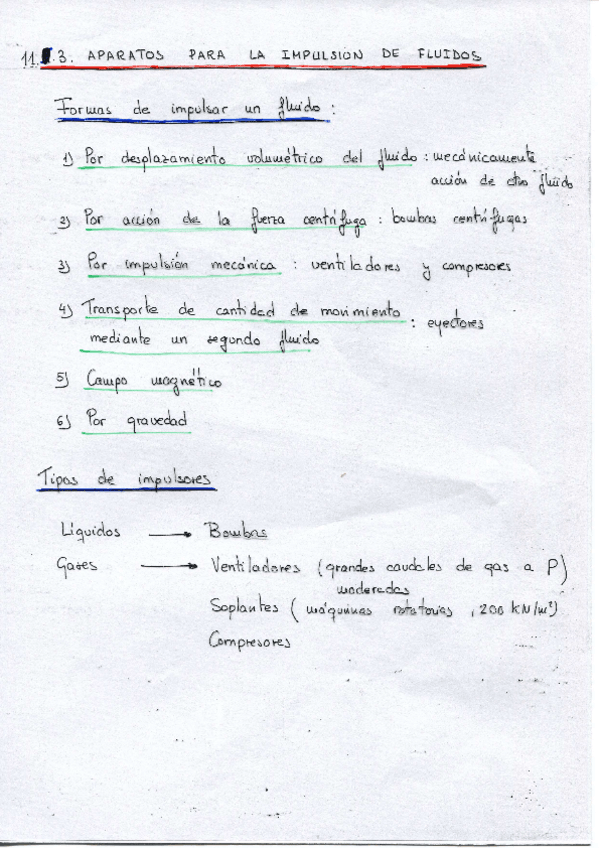 11. 3. APARATOS PARA LA IMPULSIÓN DE FLUIDOS
Formas de impulsar un fluido :
1) Por desplazamiento volumétrico del fluido : mecánicamente
acción de otro fluido
2) Por acción de la fuerza centrífuga : bombas centrífugas
3) Por impulsión mecánica : ventiladores y compresores
4) Transporte de cantidad de movimiento
mediante un segundo fluido : eyectores
5) Campo magnético
6) Por gravedad
Tipos de impulsores
Líquidos → Bombas
Gases → Ventiladores (grandes caudales de gas a P)
moderadas
Soplantes ( máquinas rotatorias , 200 kN/m²)
Compresores